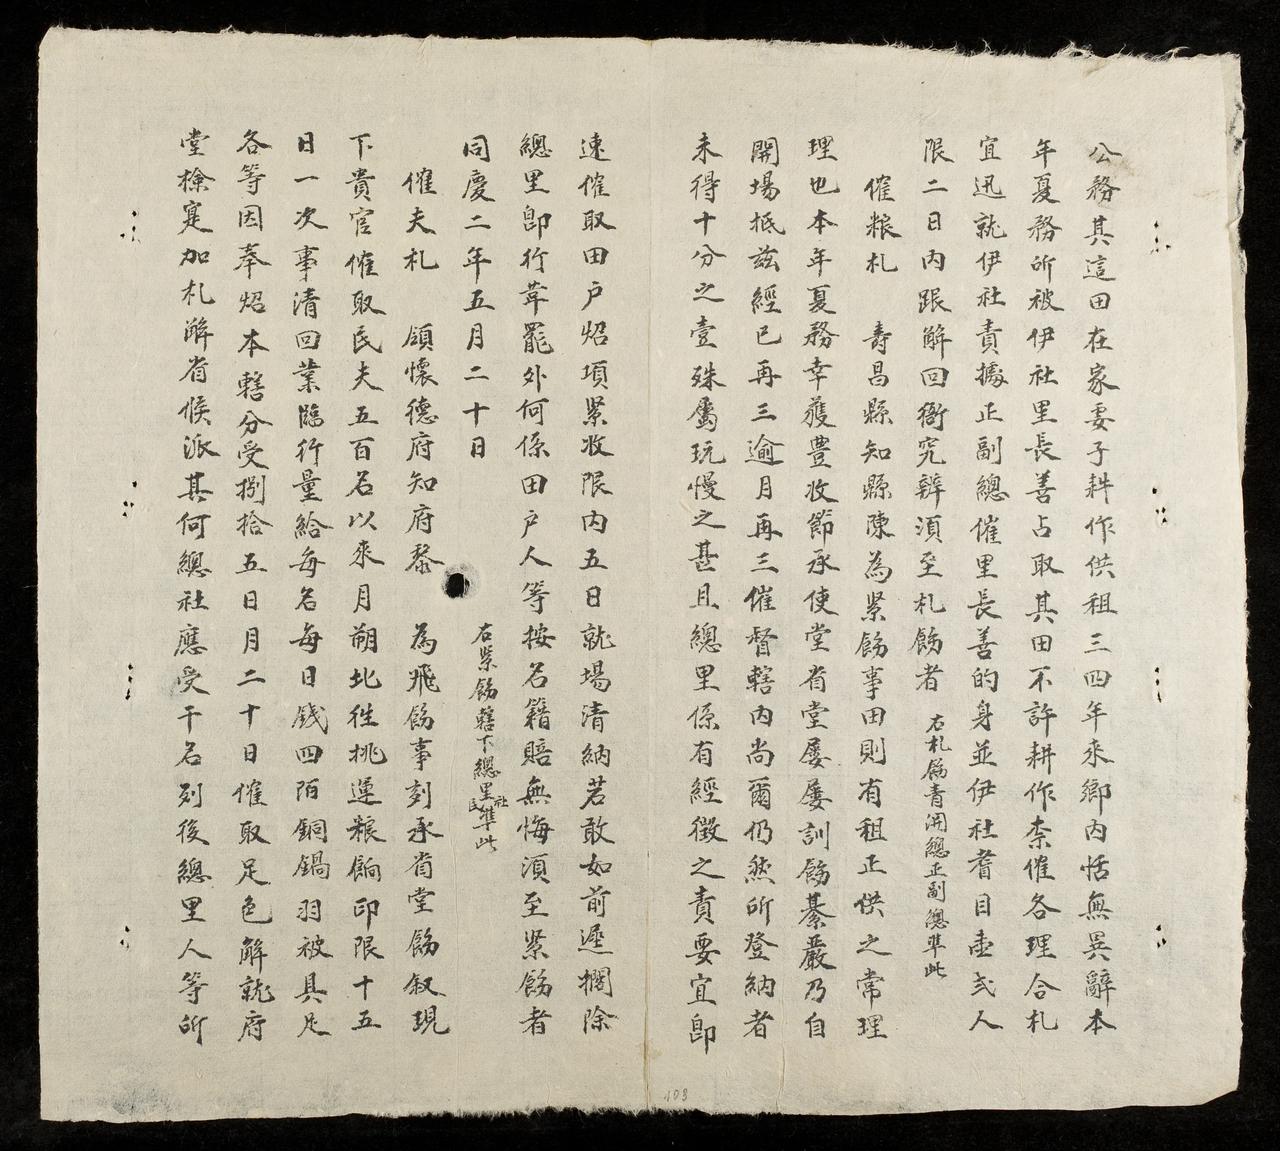 公務其這田在家妻子耕作供租三四年來鄉内恬無異辭本
年夏務所被伊社里長善占取其田不許耕作柰催各理合札
宜迅就伊社責據正副總催里長善的身並伊社耆目壹弍人
限二日内跟解回衙究辨須至札飭者　右札飭青洲總正副總準此
催粮札　壽昌縣知縣陳為緊飭事田則有租正供之常理
理也本年夏務幸獲豊收節承使堂省堂屡屡訓飭綦嚴乃自
開場抵兹經已再三逾月再三催督轄内尚爾仍然所登納者
未得十分之壹殊屬玩慢之甚且總里係有經徵之責要宜卽
速催取田户炤項緊收限内五日就塲清納若敢如前遲擱除
總里卽行革罷外何係田户人等按名籍賠無悔須至緊飭者
同慶二年五月二十日　右緊飭轄下總里社民準此
催夫札　領懷德府知府黎　為飛飭事刻承省堂飭叙現
下貴官催取民夫五百名以來月朔北徃挑運粮餉印限十五
日一次事清回業臨行量給每名每日錢四陌銅鍋羽被具足
各等因奉炤本轄分受捌拾五日月二十日催取足色解就府
堂檢寔加札解省候派其何總社應受干名列後總里人等所
103